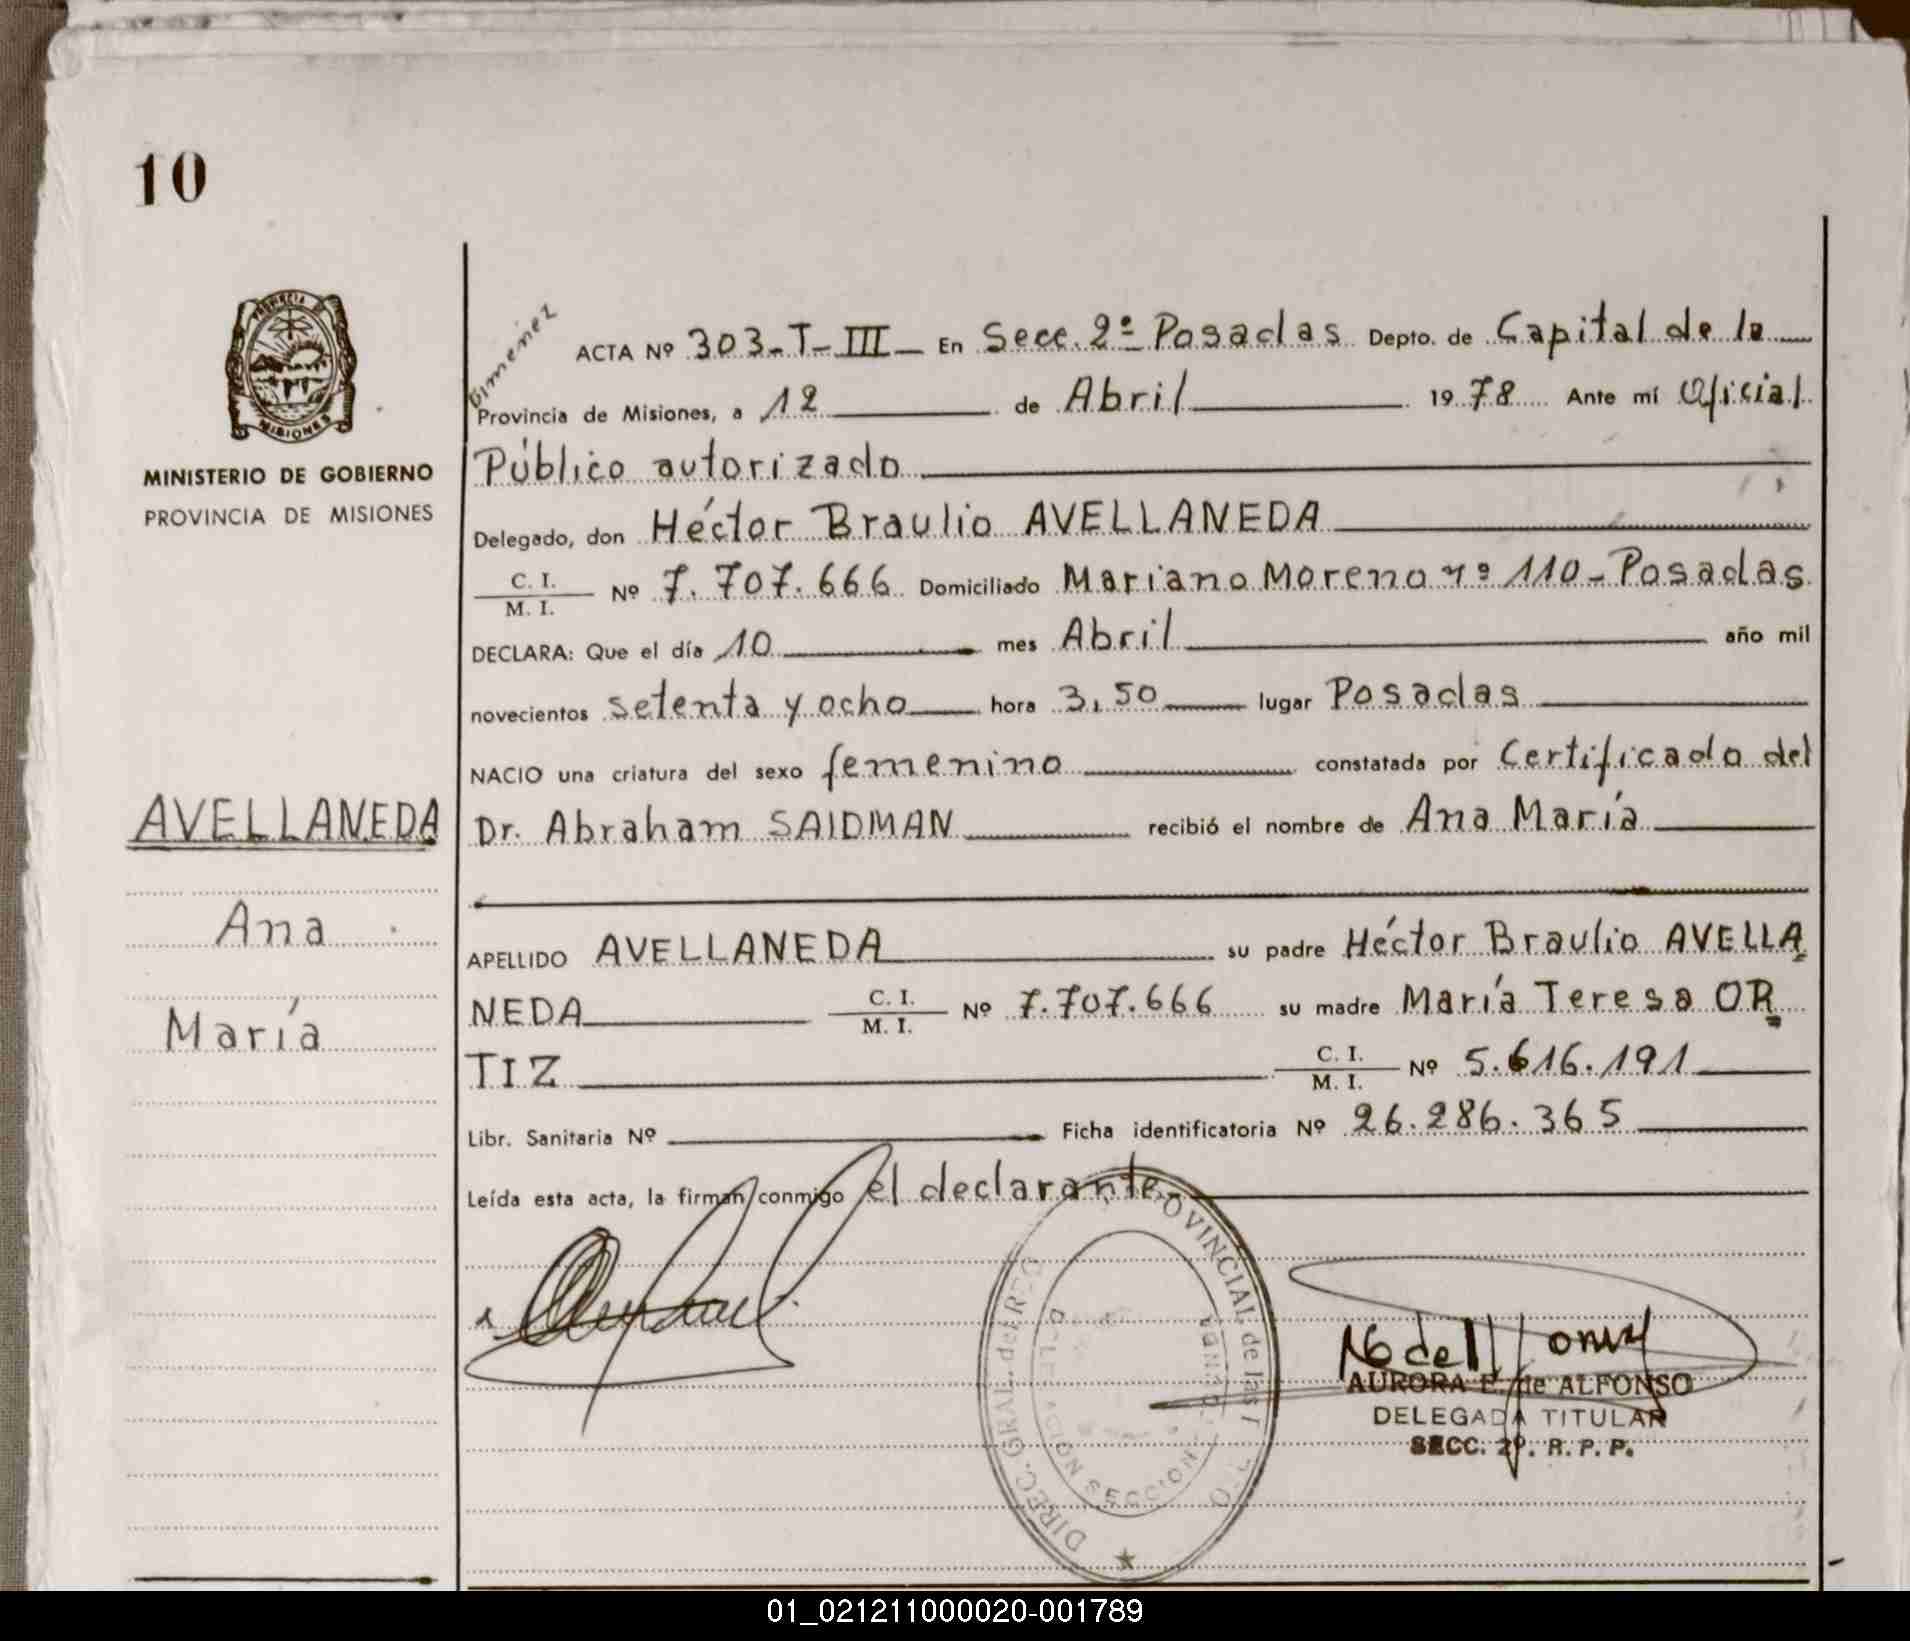 10
PROVINCIA DE
MISIONES
MINISTERIO DE GOBIERNO
PROVINCIA DE MISIONES
AVELLANEDA
Ana
María
Gimenez
ACTA Nº 303-T-III- En Secc. 2ª Posadas Depto. de Capital de la
Provincia de Misiones, a 12 de Abril 1978 Ante mí Oficial
Público autorizado
Delegado, don Héctor Braulio AVELLANEDA
C. I.
M. I. Nº 7.707.666 Domiciliado Mariano Moreno nº 110-Posadas
DECLARA: Que el día 10 mes Abril año mil
novecientos setenta y ocho hora 3,50 lugar Posadas
NACIO una criatura del sexo femenino constatada por Certificado del
Dr. Abraham SAIDMAN recibió el nombre de Ana María
APELLIDO AVELLANEDA su padre Héctor Braulio AVELLA
NEDA C. I.
M. I. Nº 7.707.666 su madre María Teresa OR
TIZ C. I.
M. I. Nº 5.616.191
Libr. Sanitaria Nº Ficha identificatoria Nº 26.286.365
Leída esta acta, la firman conmigo el declarante.
DIREC. GRAL. del REG PROVINCIAL de las
SECCION
AURORA E. de ALFONSO
DELEGADA TITULAR
SECC. 2ª. R. P. P.
01_021211000020-001789